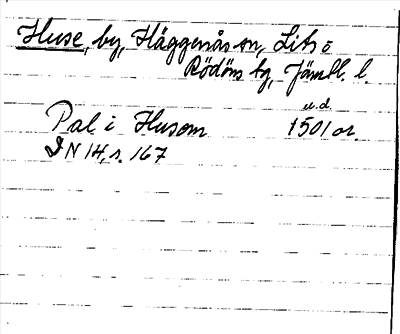 Huse, by, Häggenås sn, Lits o
Rödöns tg, Jämtl. l.
u.d.
Pal i Husom 1501 or.
DN 14, s. 167